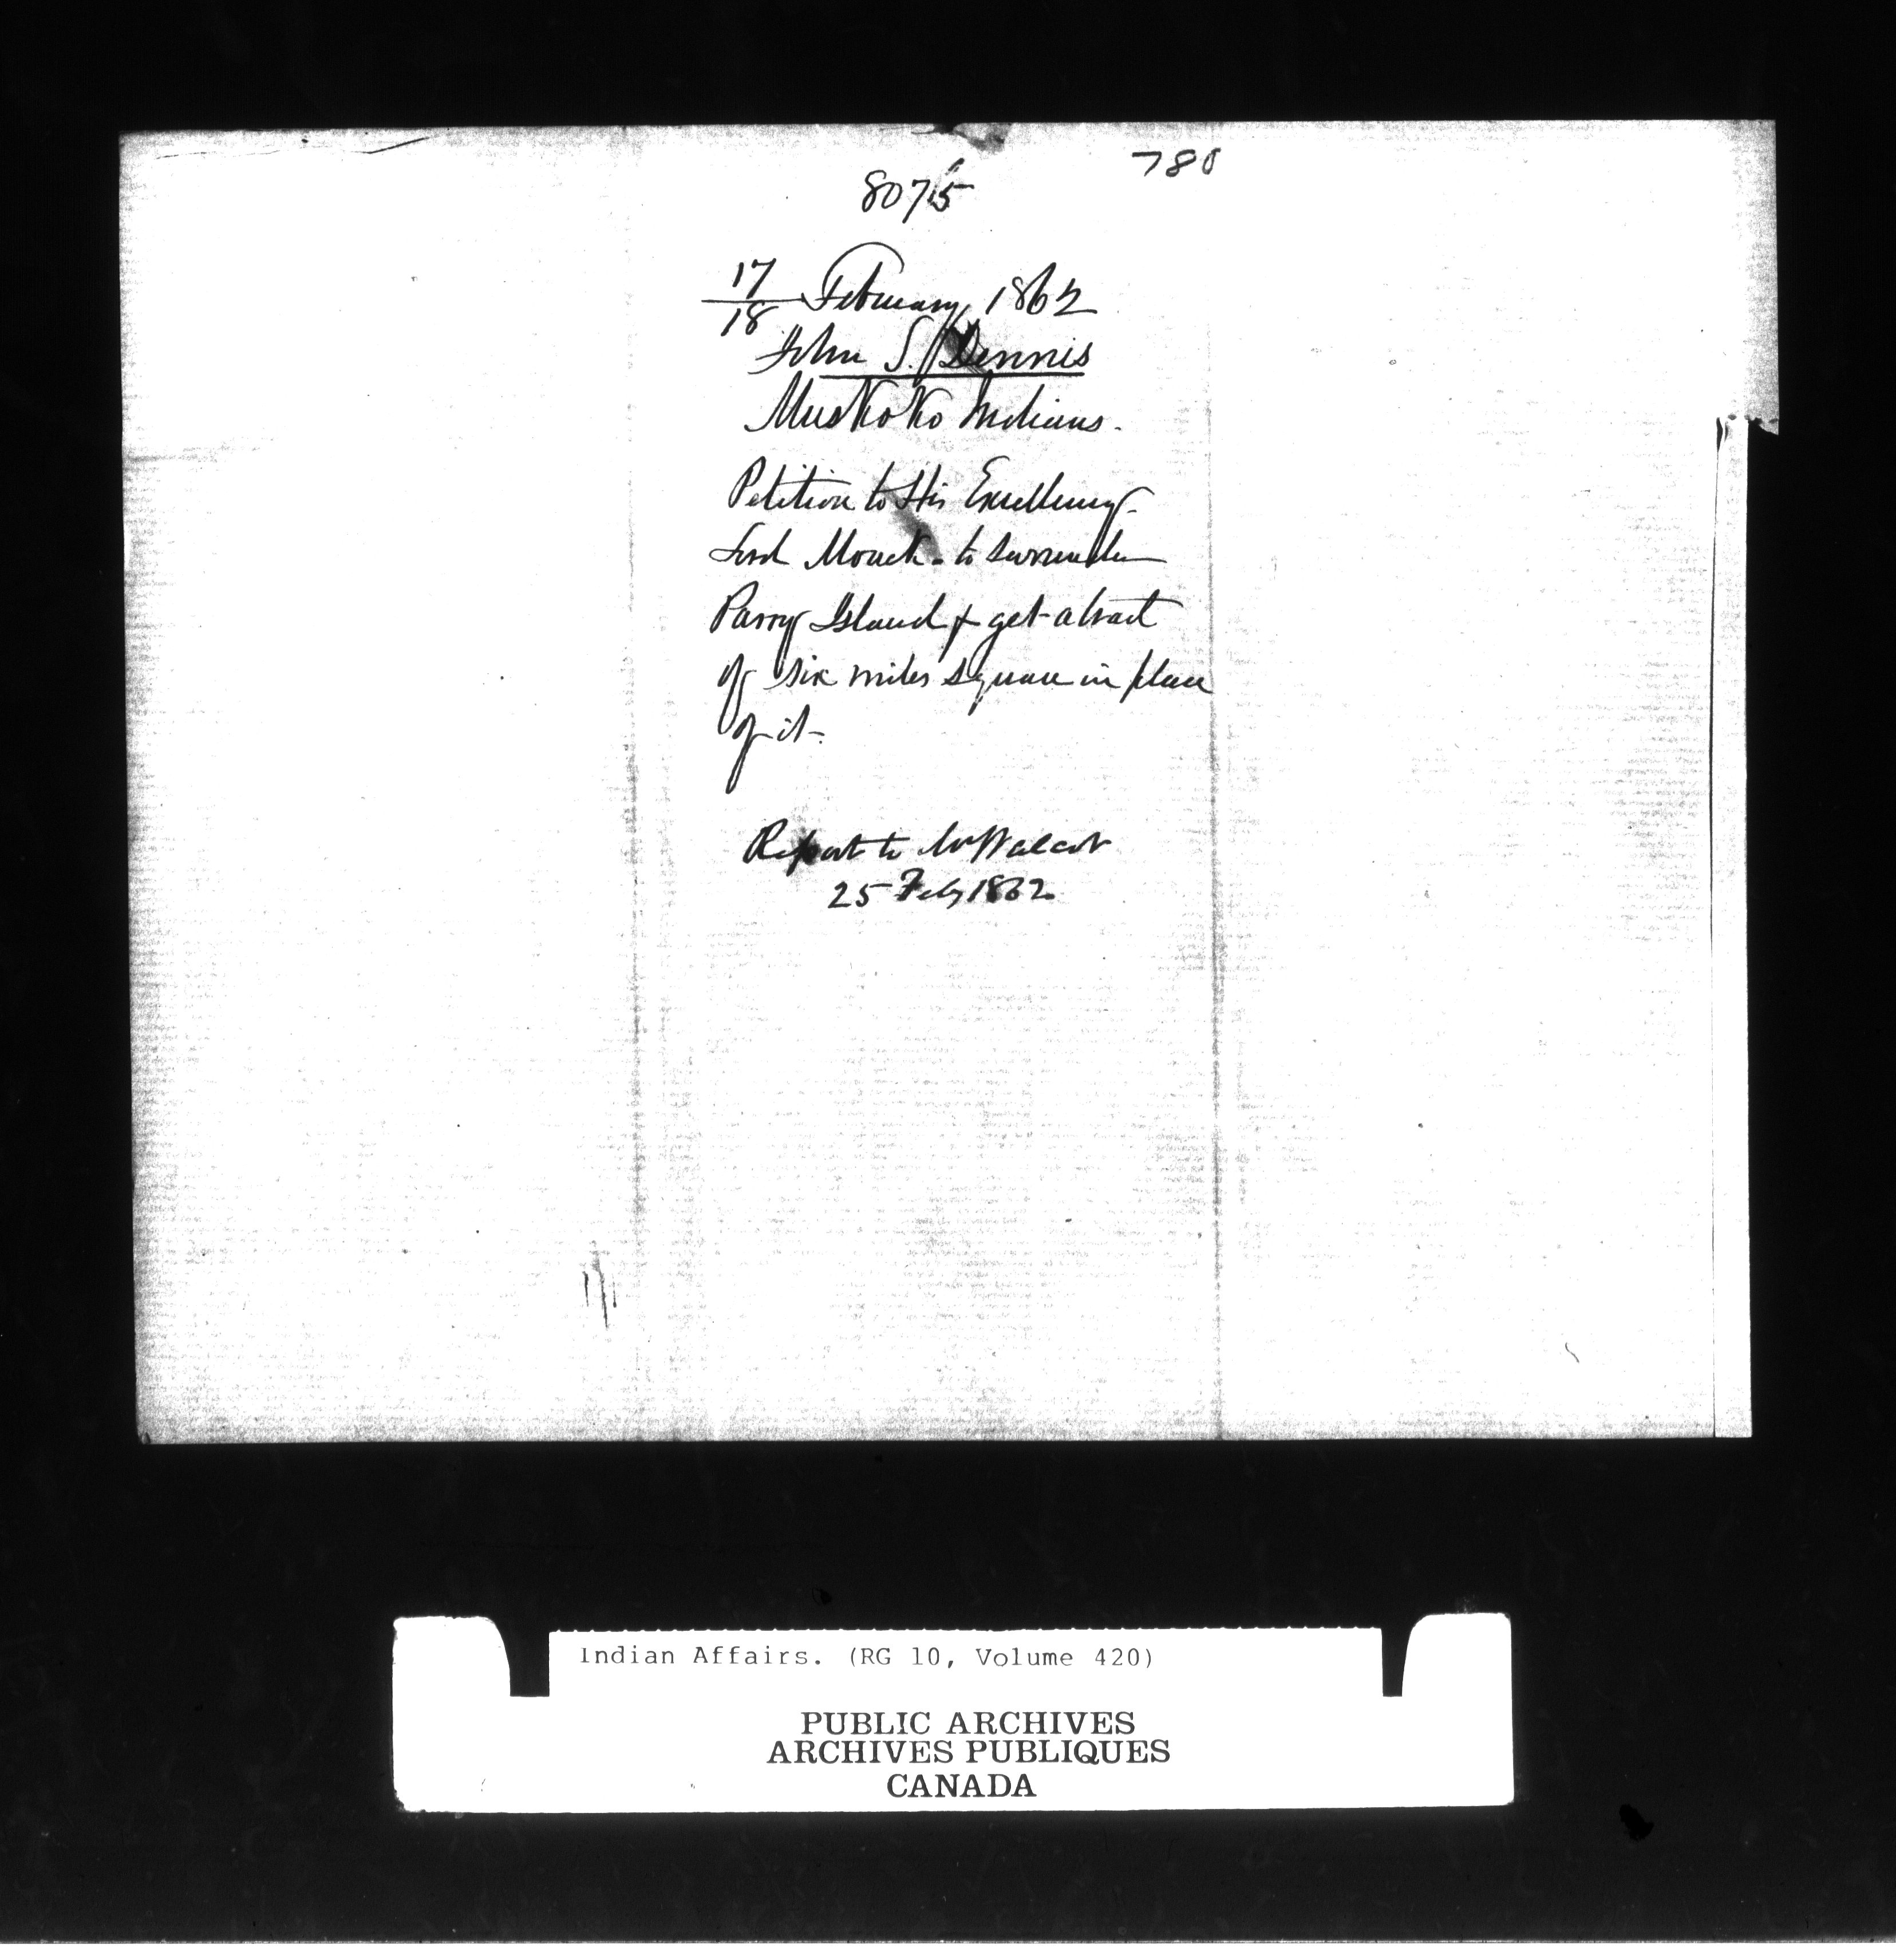 780
8075
17/18 February 1862
John S. Dennis
Muskoko Indians.
Petition to His Excellency
Lord Monck - to surrender
Parry Island & get a tract
of six miles square in place
of it -
Report to Mr Walcot
25 Feby 1862
Indian Affairs. (RG 10, Volume 420)
PUBLIC ARCHIVES
ARCHIVES PUBLIQUES
CANADA